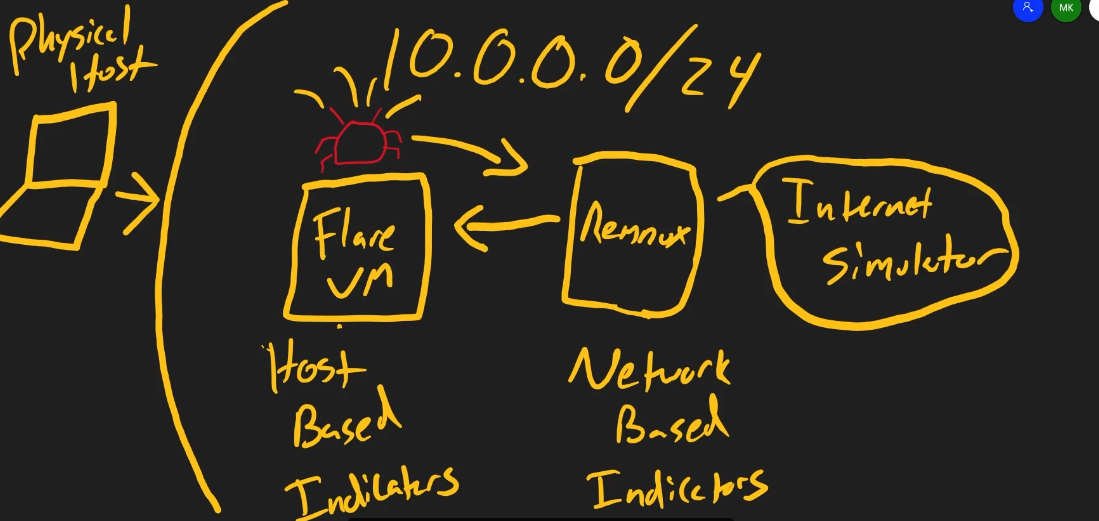 MK
Physical
Host
10.0.0.0/24
Flare
VM
Remnux
Internet
Simulator
Host
Based
Indicators
Network
Based
Indicators